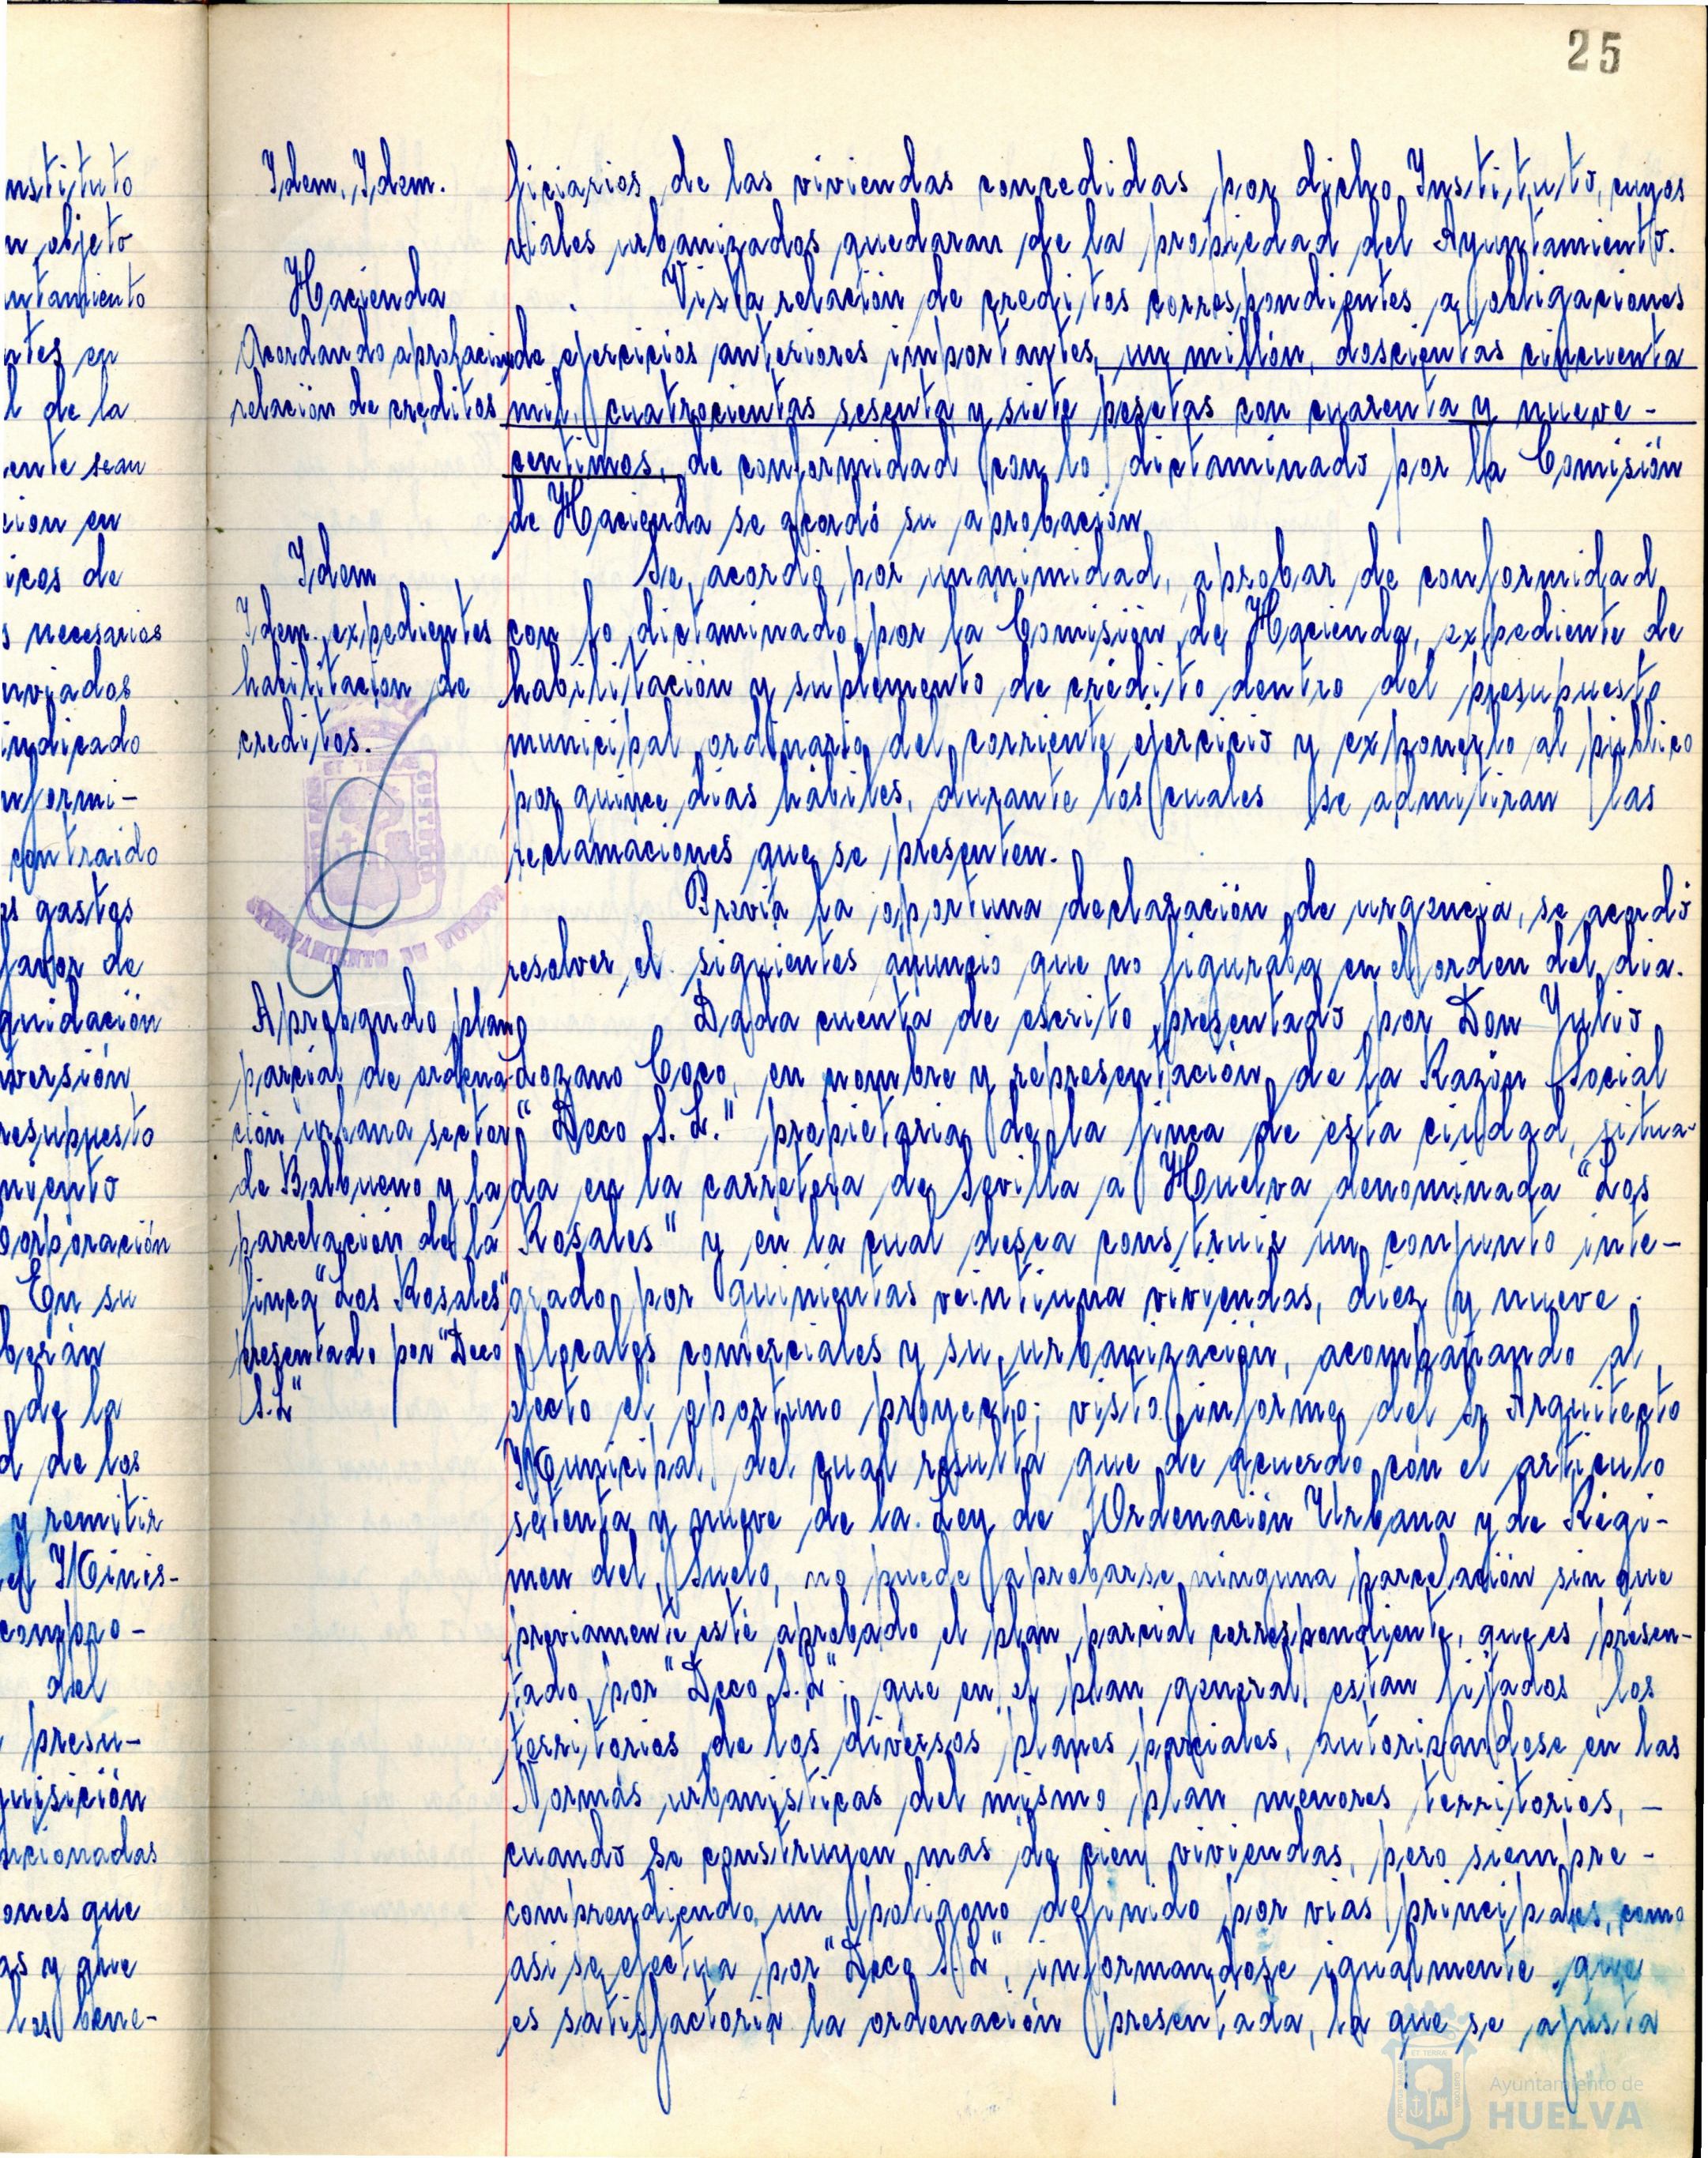 25
nstituto
n objeto
untamiento
ntes en
l de la
ente sean
cion en
icos de
s necesarios
nviados
indicado
nformi-
contraido
os gastos
favor de
quidación
versión
resupuesto
miento
orporación
En su
berán
de la
d de los
y remitir
el Minis-
compro-
del
presu-
quisición
dicionadas
ones que
as y que
los bene-
Idem, Idem.
Hacienda
Acordando aprobacion
relación de creditos
Idem
Idem. expedientes
habilitación de
creditos.
Aprobando plan
parcial de ordena-
ción urbana sector
de Balbueno y la
parcelación de la
finca "Los Rosales"
presentado por "Deco
S.L"
ficiarios de las viviendas concedidas por dicho Instituto, cuyos
viales urbanizados quedaran de la propiedad del Ayuntamiento.
Vista relación de creditos correspondientes a obligaciones
de ejercicios anteriores importantes, un millón, doscientas cincuenta
mil, cuatrocientas sesenta y siete pesetas con cuarenta y nueve -
centimos, de conformidad con lo dictaminado por la Comisión
de Hacienda se acordó su aprobación
Se acordó por unanimidad, aprobar de conformidad
con lo dictaminado por la Comisión de Hacienda, expediente de
habilitación y suplemento de crédito dentro del presupuesto
municipal ordinario del corriente ejercicio y exponerlo al público
por quince dias hábiles, durante los cuales se admitiran las
reclamaciones que se presenten.
Previa la oportuna declaración de urgencia, se acordó
resolver el siguientes anuncio que no figuraba en el orden del dia.
Dada cuenta de escrito presentado por Don Julio
Lozano Coco, en nombre y representación de la Razón Social
"Deco S. L." propietaria de la finca de esta ciudad, situa-
da en la carretera de Sevilla a Huelva denominada "Los
Rosales" y en la cual desea construir un conjunto inte-
grado por quinientas veintiuna viviendas, diez y nueve
locales comerciales y su urbanización, acompañando al
efecto el oportuno proyecto; visto informe del Sr Arquitecto
Municipal del cual resulta que de acuerdo con el articulo
setenta y nueve de la Ley de Ordenación Urbana y de Regi-
men del Suelo, no puede aprobarse ninguna parcelación sin que
previamente esté aprobado el plan parcial correspondiente, que es presen-
tado por "Deco S.L"; que en el plan general estan fijados los
territorios de los diversos planes parciales, autorizandose en las
Normas urbanisticas del mismo plan menores territorios, -
cuando se construyen mas de cien viviendas, pero siempre -
comprendiendo un poligono definido por vias principales, como
asi se efectua por "Deco S.L", informandose igualmente que
es satisfactoria la ordenación presentada, la que se ajusta
Ayuntamiento de
HUELVA